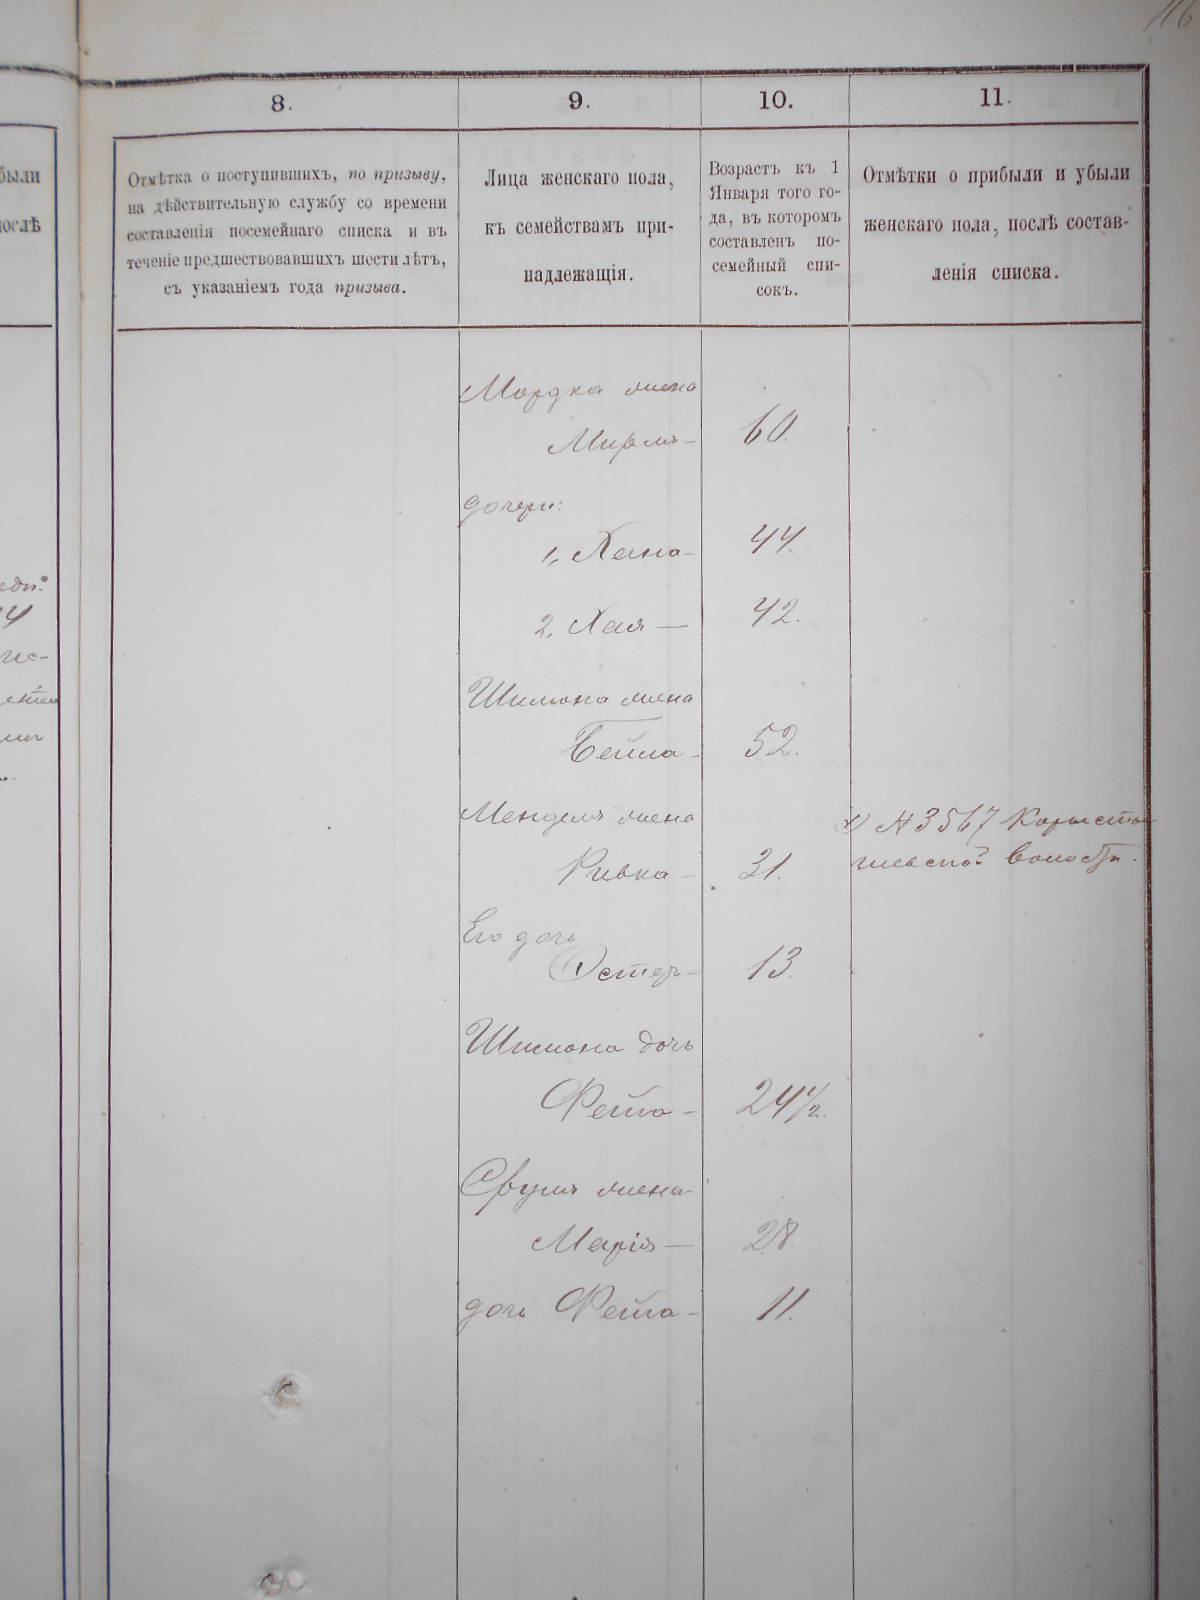 116
8.
9.
10.
11.
Отмѣтка о поступившихъ, по призыву,
на дѣйствительную службу со времени
составленія посемейнаго списка и въ
теченіе предшествовавшихъ шести лѣтъ,
съ указаніемъ года призыва.
Лица женскаго пола,
къ семействамъ при-
надлежащія.
Возрастъ къ 1
Января того го-
да, въ которомъ
составленъ по-
семейный спи-
сокъ.
Отмѣтки о прибыли и убыли
женскаго пола, послѣ состав-
ленія списка.
были
послѣ
Мордка жена
Мирля- 60.
дочери:
1, Хана- 44.
2, Хая — 42.
Шимона жена
Бейла- 52.
Менделя жена
Ривка- 31.
х) №3567 Коросты-
шевской волости.
Его дочь
Эстеръ- 13.
Шимона дочь
Фейга- 24 1/2.
Сруля жена-
Марія — 28.
дочь Фейга- 11.